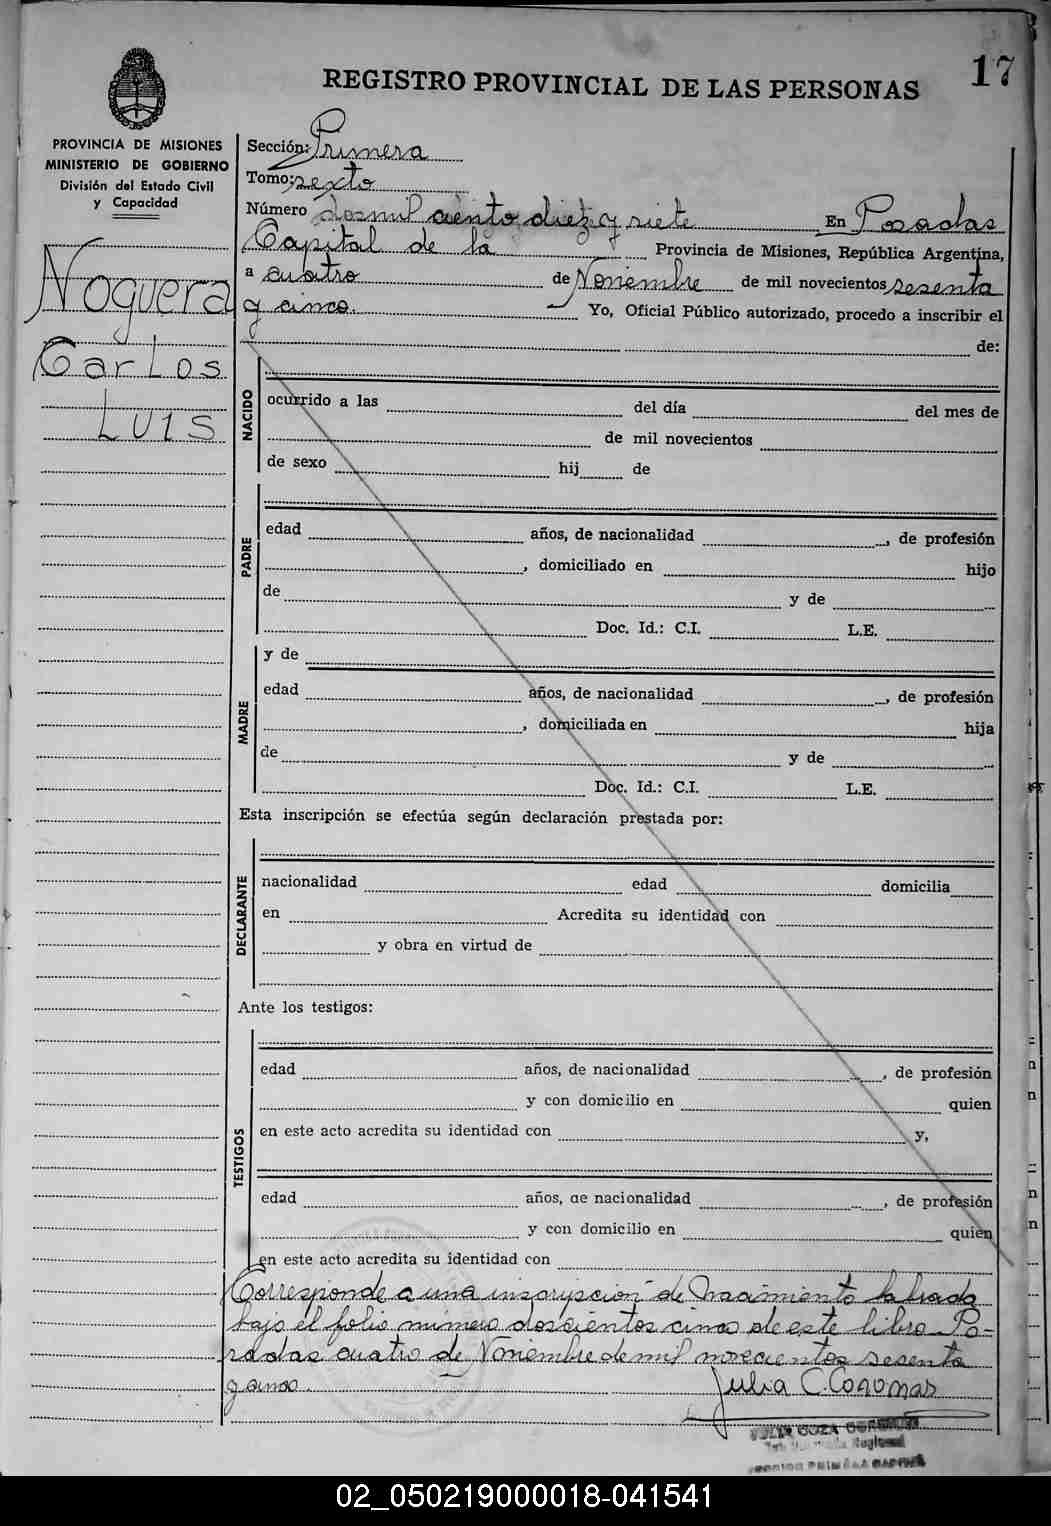 17
REGISTRO PROVINCIAL DE LAS PERSONAS
PROVINCIA DE MISIONES
MINISTERIO DE GOBIERNO
División del Estado Civil
y Capacidad
Noguera
Carlos
Luis
Sección: Primera
Tomo: sexto
Número dosmil ciento diez y siete En Posadas
Capital de la Provincia de Misiones, República Argentina,
a cuatro de Noviembre de mil novecientos sesenta
y cinco. Yo, Oficial Público autorizado, procedo a inscribir el
de:
NACIDO
ocurrido a las del día del mes de
de mil novecientos
de sexo hij de
PADRE
edad años, de nacionalidad , de profesión
, domiciliado en hijo
de y de
Doc. Id.: C.I. L.E.
MADRE
y de
edad años, de nacionalidad , de profesión
, domiciliada en hija
de y de
Doc. Id.: C.I. L.E.
Esta inscripción se efectúa según declaración prestada por:
DECLARANTE
nacionalidad edad domicilia
en Acredita su identidad con
y obra en virtud de
Ante los testigos:
TESTIGOS
edad años, de nacionalidad , de profesión
y con domicilio en quien
en este acto acredita su identidad con y,
edad años, de nacionalidad , de profesión
y con domicilio en quien
en este acto acredita su identidad con
Corresponde a una inscripción de Nacimiento labrada
bajo el folio número doscientos cinco de este libro. Po-
sadas cuatro de Noviembre de mil novecientos sesenta
y cinco.
Julia C. Coronas
02_050219000018-041541